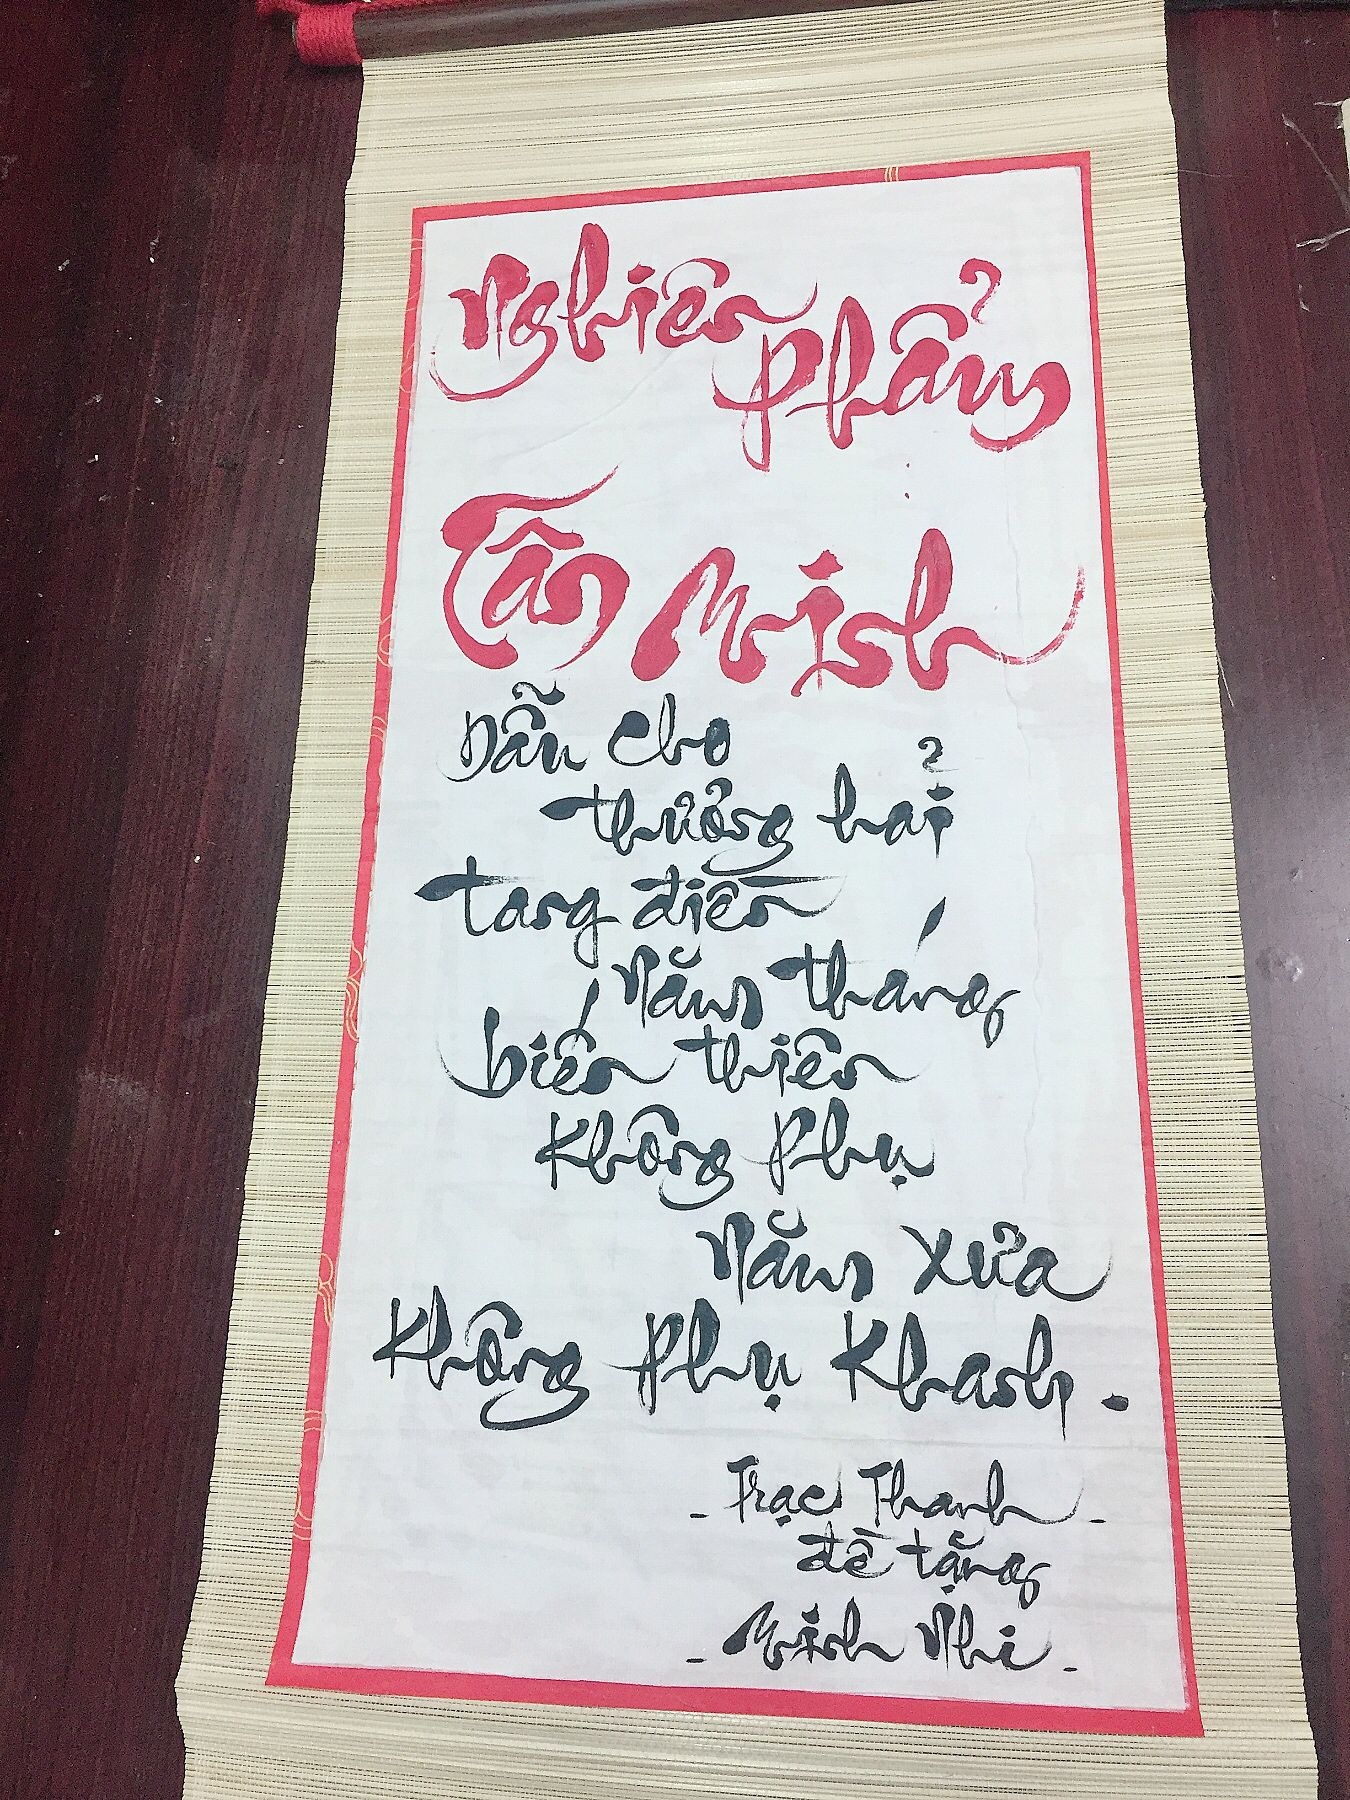 Nghiên
phẩm
Tân Minh
Dẫu cho
thưởng hải
tang điền
năm tháng
biến thiên
Không phụ
năm xưa
Không phụ Khanh.
- Trạc Thanh -
đề tặng
- Minh Nhi -